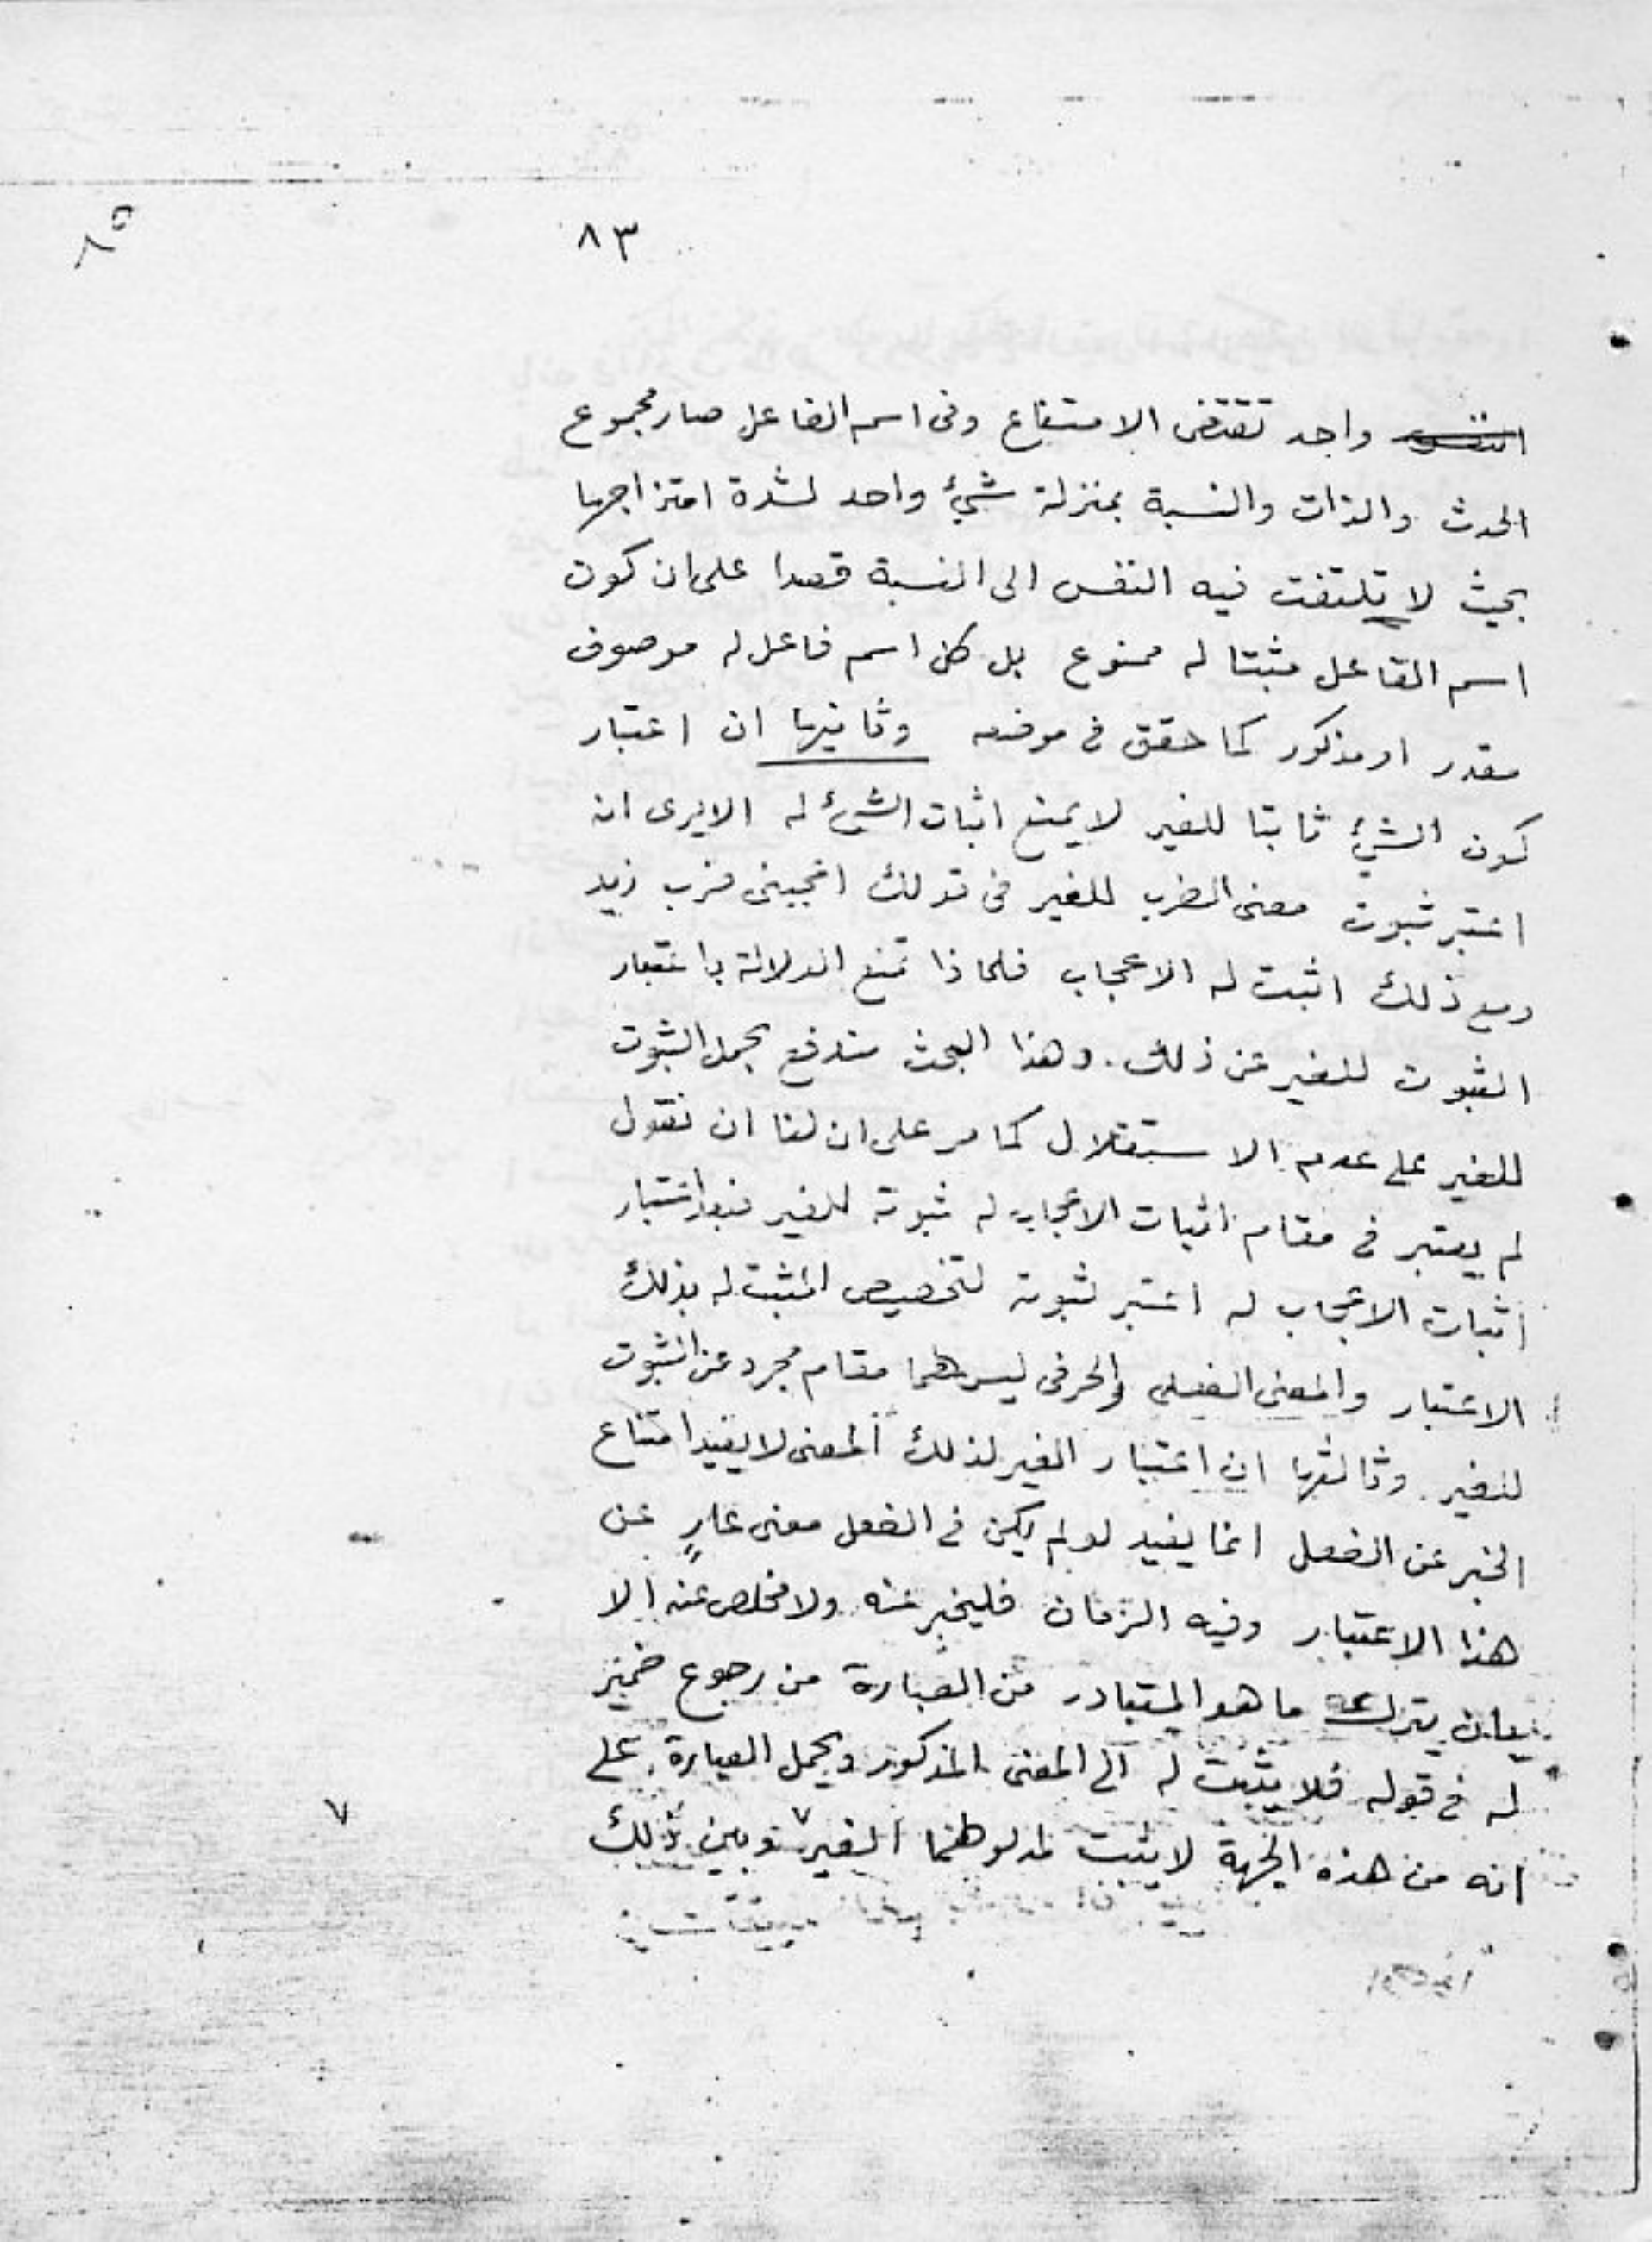 ٨٣
واحد تقتضى الامتناع وفى اسم الفاعل صار مجموع
الحدث والذات والنسبة بمنزلة شيء واحد لشدة امتزاجها
بحيث لا تلتفت فيه النفس الى النسبة قصدا على ان كون
اسم الفاعل مثبتا له ممنوع بل كل اسم فاعل له موصوف
مقدر او مذكور كما حقق فى موضعه وثانيها ان اعتبار
كون الشيء ثابتا للغير لا يمنع اثبات الشيء له الا يرى انه
اعتبر ثبوت معنى الضرب للغير فى قولك اعجبنى ضرب زيد
ومع ذلك اثبت له الاعجاب فلماذا تمنع الدلالة باعتبار
الثبوت للغير عن ذلك . وهذا البحث مندفع بحمل الثبوت
للغير على عدم الاستقلال كما مر على ان لنا ان نقول
لم يعتبر فى مقام اثبات الاعجاب له ثبوته للغير فبعد اعتبار
اثبات الاعجاب له اعتبر ثبوته لتخصيص المثبت له بذلك
الاعتبار والمعنى الفعلى والحرفى ليس لهما مقام مجرد عن الثبوت
للغير . وثالثها ان اعتبار الغير لذلك المعنى لا يفيد امتناع
الخبر عن الفعل انما يفيد لو لم يكن فى الفعل معنى عارٍ عن
هذا الاعتبار وفيه الزمان فليخبر عنه ولا مخلص عنه الا
بان يترك ما هو المتبادر من العبارة من رجوع ضمير
له فى قوله فلا يثبت له الى المعنى المذكور ويحمل العبارة على
انه من هذه الجهة لا يثبت لمدلولهما الغير ٧ وبين ذلك
٧